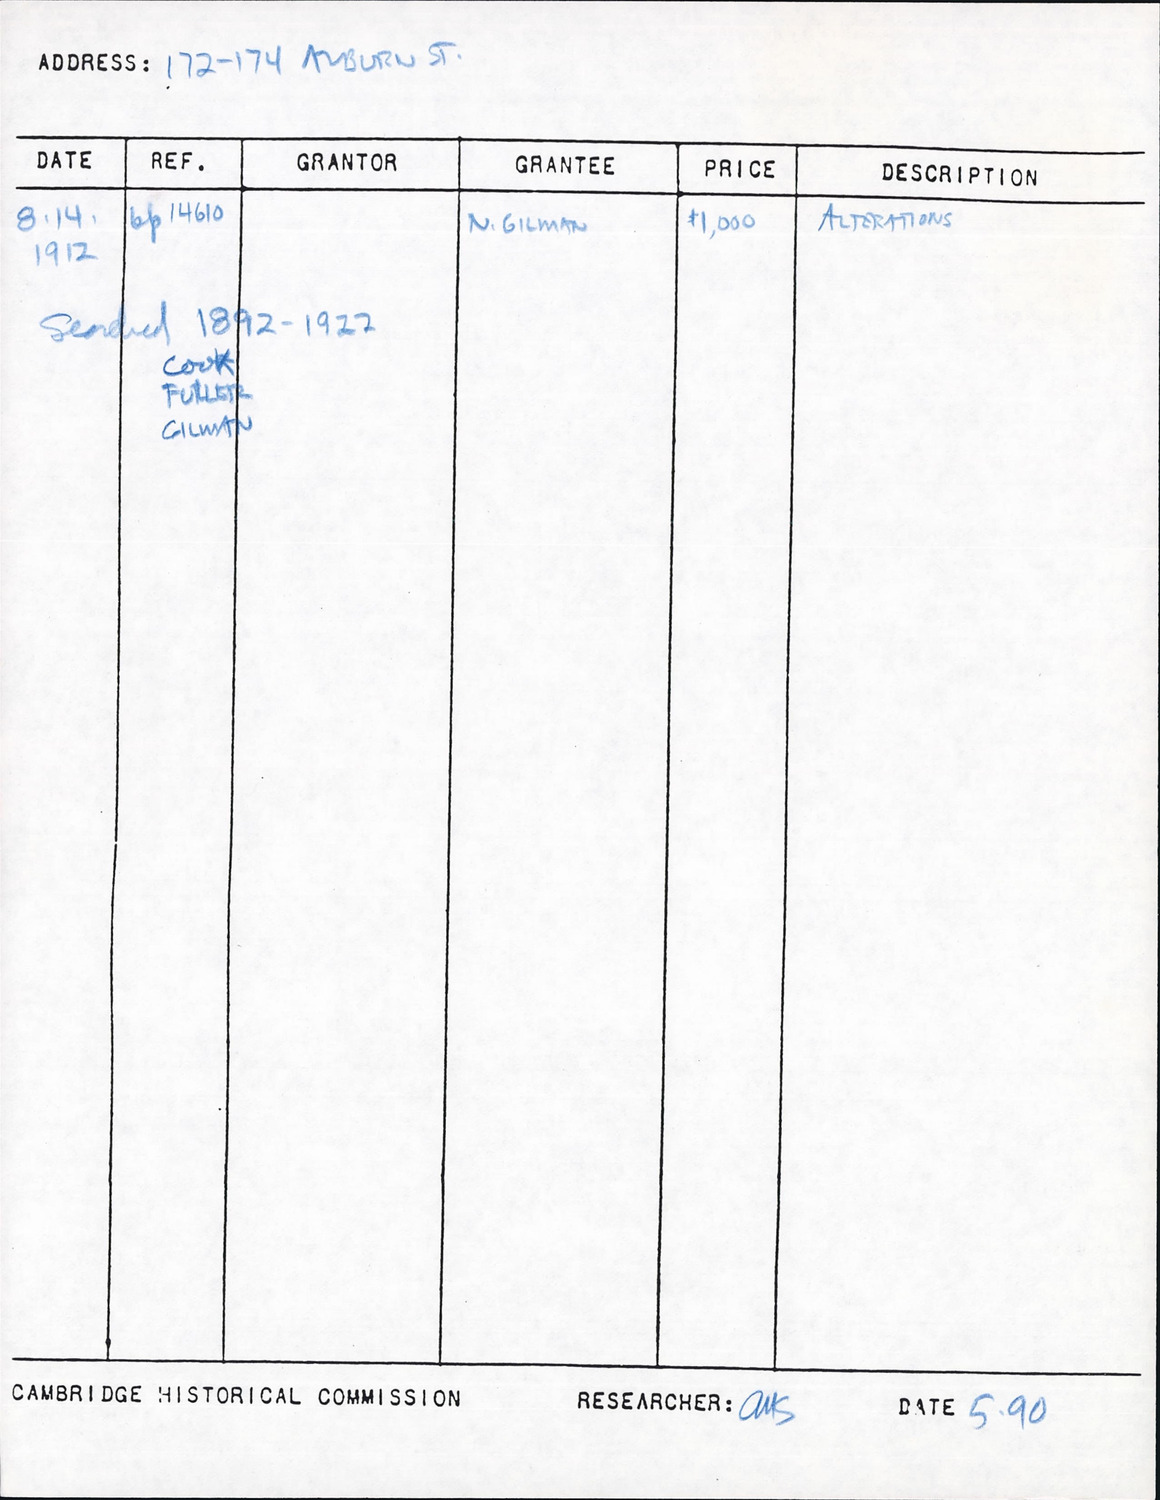 ADDRESS: 172-174 AUBURN ST.
DATE REF. GRANTOR GRANTEE PRICE DESCRIPTION
8.14. bp 14610 N. GILMAN $1,000 ALTERATIONS
1912
Searched 1892-1922
COOK
FULLER
GILMAN
CAMBRIDGE HISTORICAL COMMISSION RESEARCHER: DATE 5.90